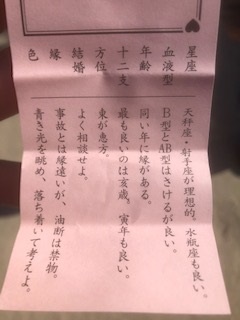 星座 天秤座・射手座が理想的。水瓶座も良い。
血液型 B型とAB型はさけるが良い。
年齢 同い年に縁がある。
十二支 最も良いのは亥歳。寅年も良い。
方位 東が恵方。
結婚 よく相談せよ。
縁 事故とは縁遠いが、油断は禁物。
色 青き光を眺め、落ち着いて考えよ。